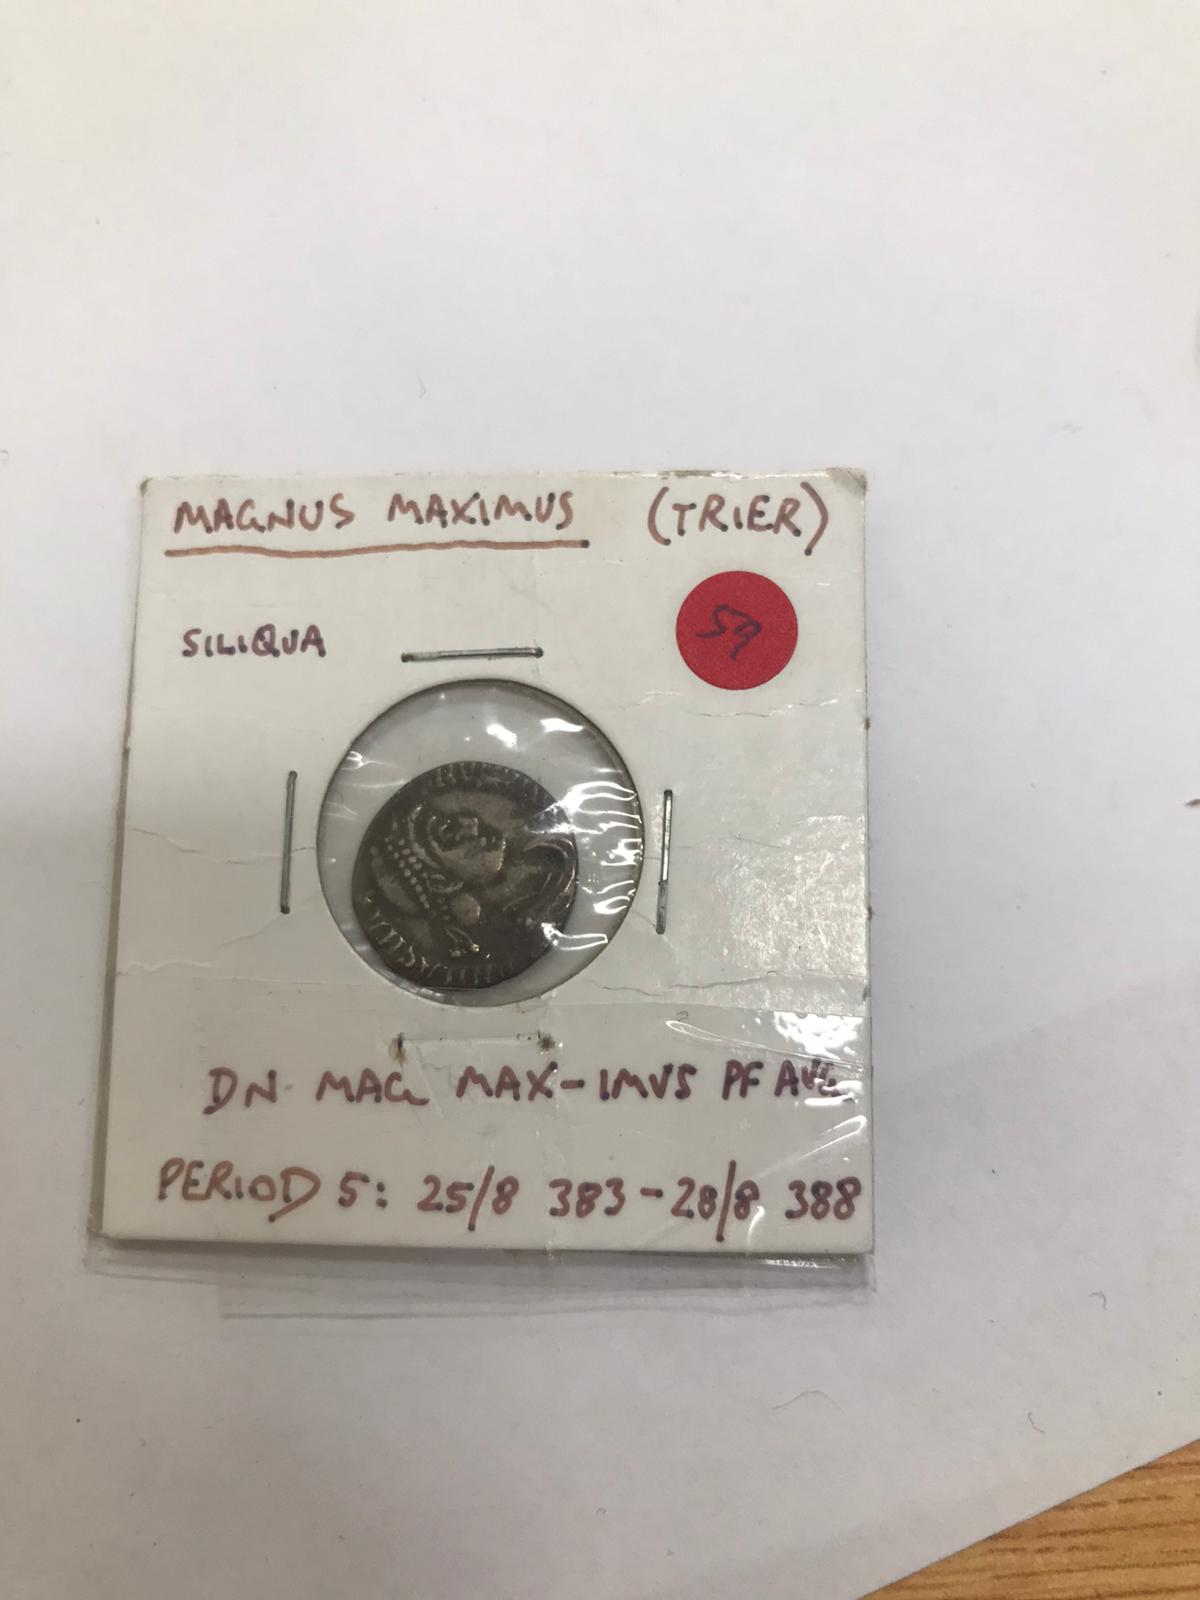 MAGNUS MAXIMUS (TRIER)
59
SILIQUA
DN MAG MAX-IMVS PF AVG
PERIOD 5: 25/8 383-28/8 388